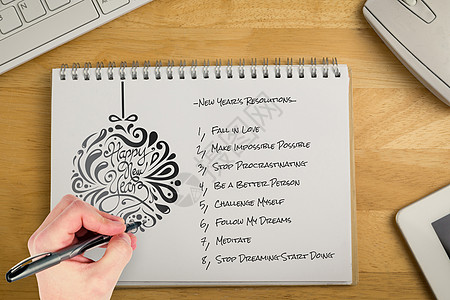 Happy
New
Year
-New Year's Resolutions...
1, Fall in Love
2, Make Impossible Possible
3, Stop Procrastinating
4, Be a Better Person
5, Challenge Myself
6, Follow My Dreams
7, Meditate
8, Stop Dreaming Start Doing